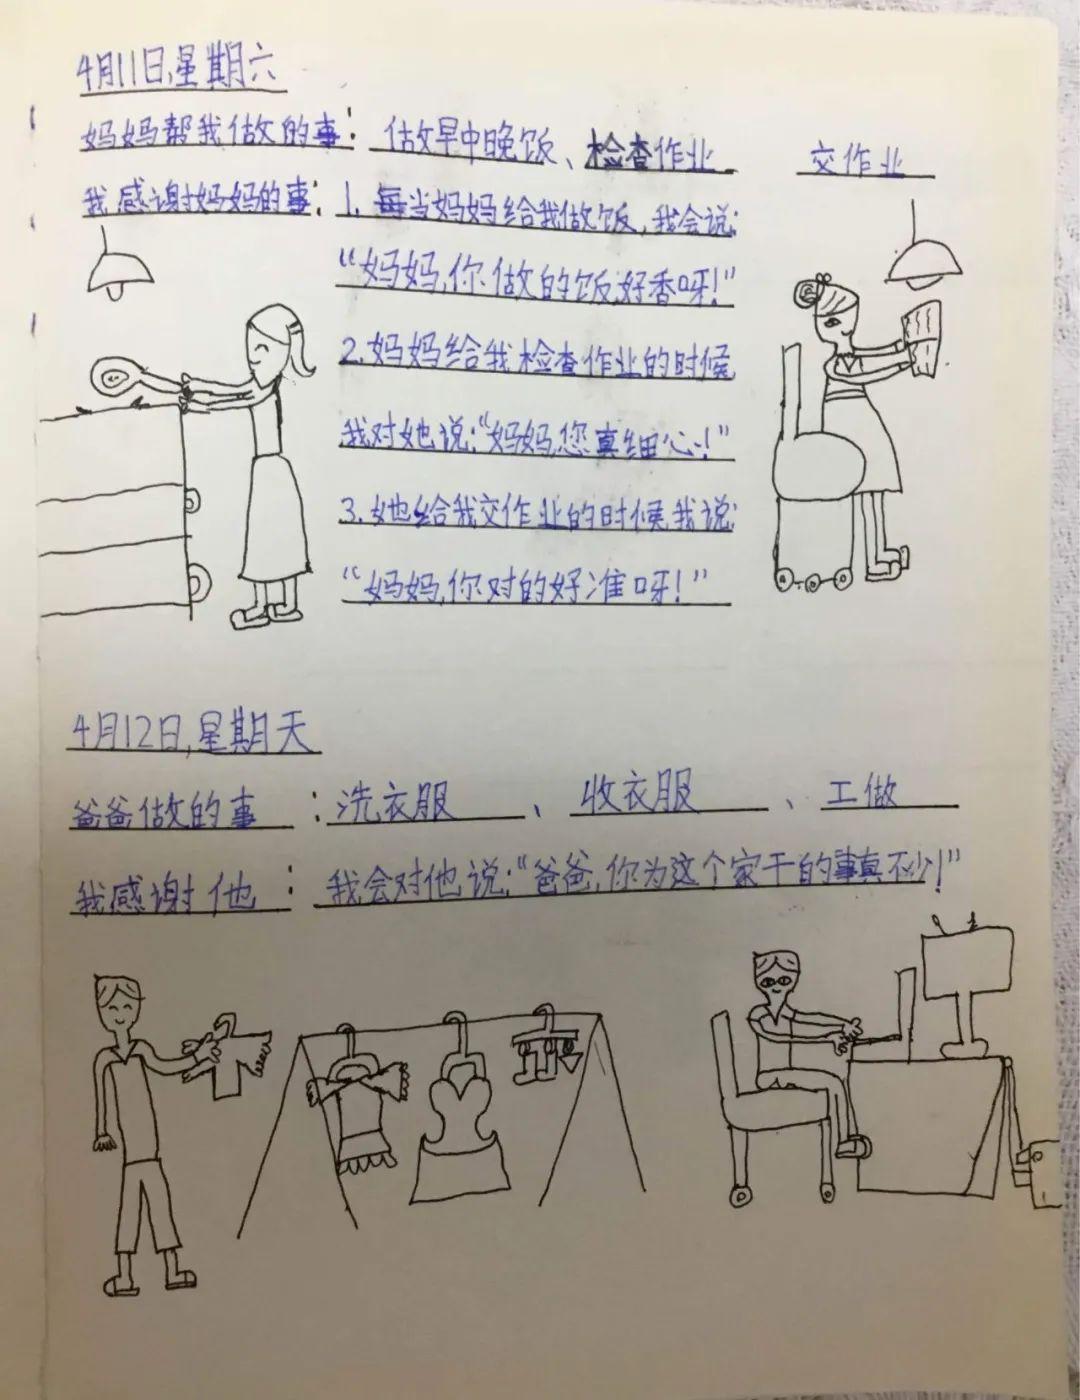 4月11日,星期六
妈妈帮我做的事：做早中晚饭、检查作业 交作业
我感谢妈妈的事：1.每当妈妈给我做饭,我会说:
“妈妈,你做的饭好香呀!”
2.妈妈给我检查作业的时候
我对她说:“妈妈,您真细心!”
3.她给我交作业的时候,我说:
“妈妈,你对的好准呀!”
4月12日,星期天
爸爸做的事：洗衣服、收衣服、工做
我感谢他：我会对他说:“爸爸,你为这个家干的事真不少!”